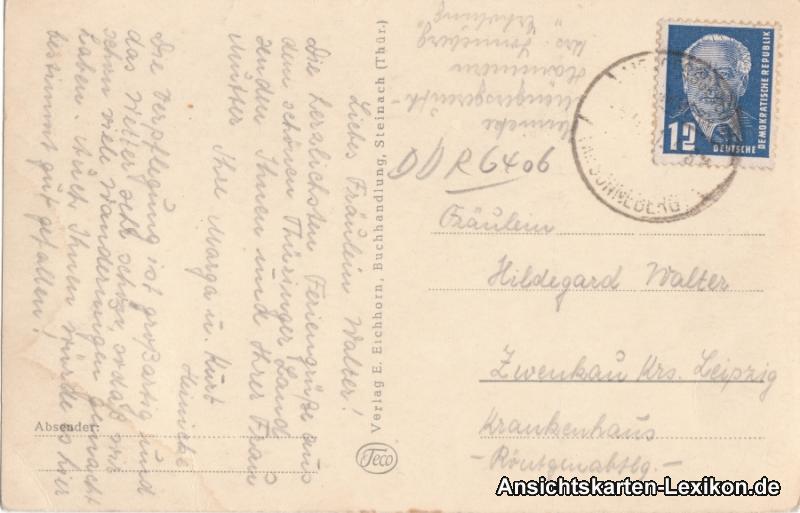 Liebes Fräulein Walter!
Die herzlichsten Feriengrüße aus
dem schönen Thüringer Land
senden Ihnen und Ihrer Frau
Mutter Ihre Marga u. Kurt
Heinicke
Die Verpflegung ist großartig und
das Wetter sehr schön, sodaß wir
schon viele Wanderungen gemacht
haben. Auch Ihnen würde es hier
bestimmt gut gefallen!
Absender:
Verlag E. Eichhorn, Buchhandlung, Steinach (Thür.)
Teco
Heinicke
Hämmern
Krs. Sonneberg
"Erholung"
DDR 6406
12
DEUTSCHE
DEMOKRATISCHE REPUBLIK
SONNEBERG
Fräulein
Hildegard Walter
Zwenkau Krs. Leipzig
Krankenhaus
- Röntgenabtlg. -
Ansichtskarten-Lexikon.de